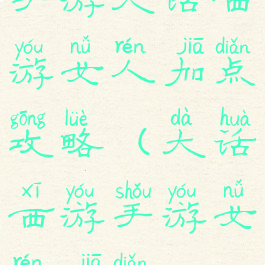 手游大话西
yóu nǚ rén jiā diǎn
游女人加点
gōng lüè dà huà
攻略(大话
xī yóu shǒu yóu nǚ
西游手游女
rén jiā diǎn